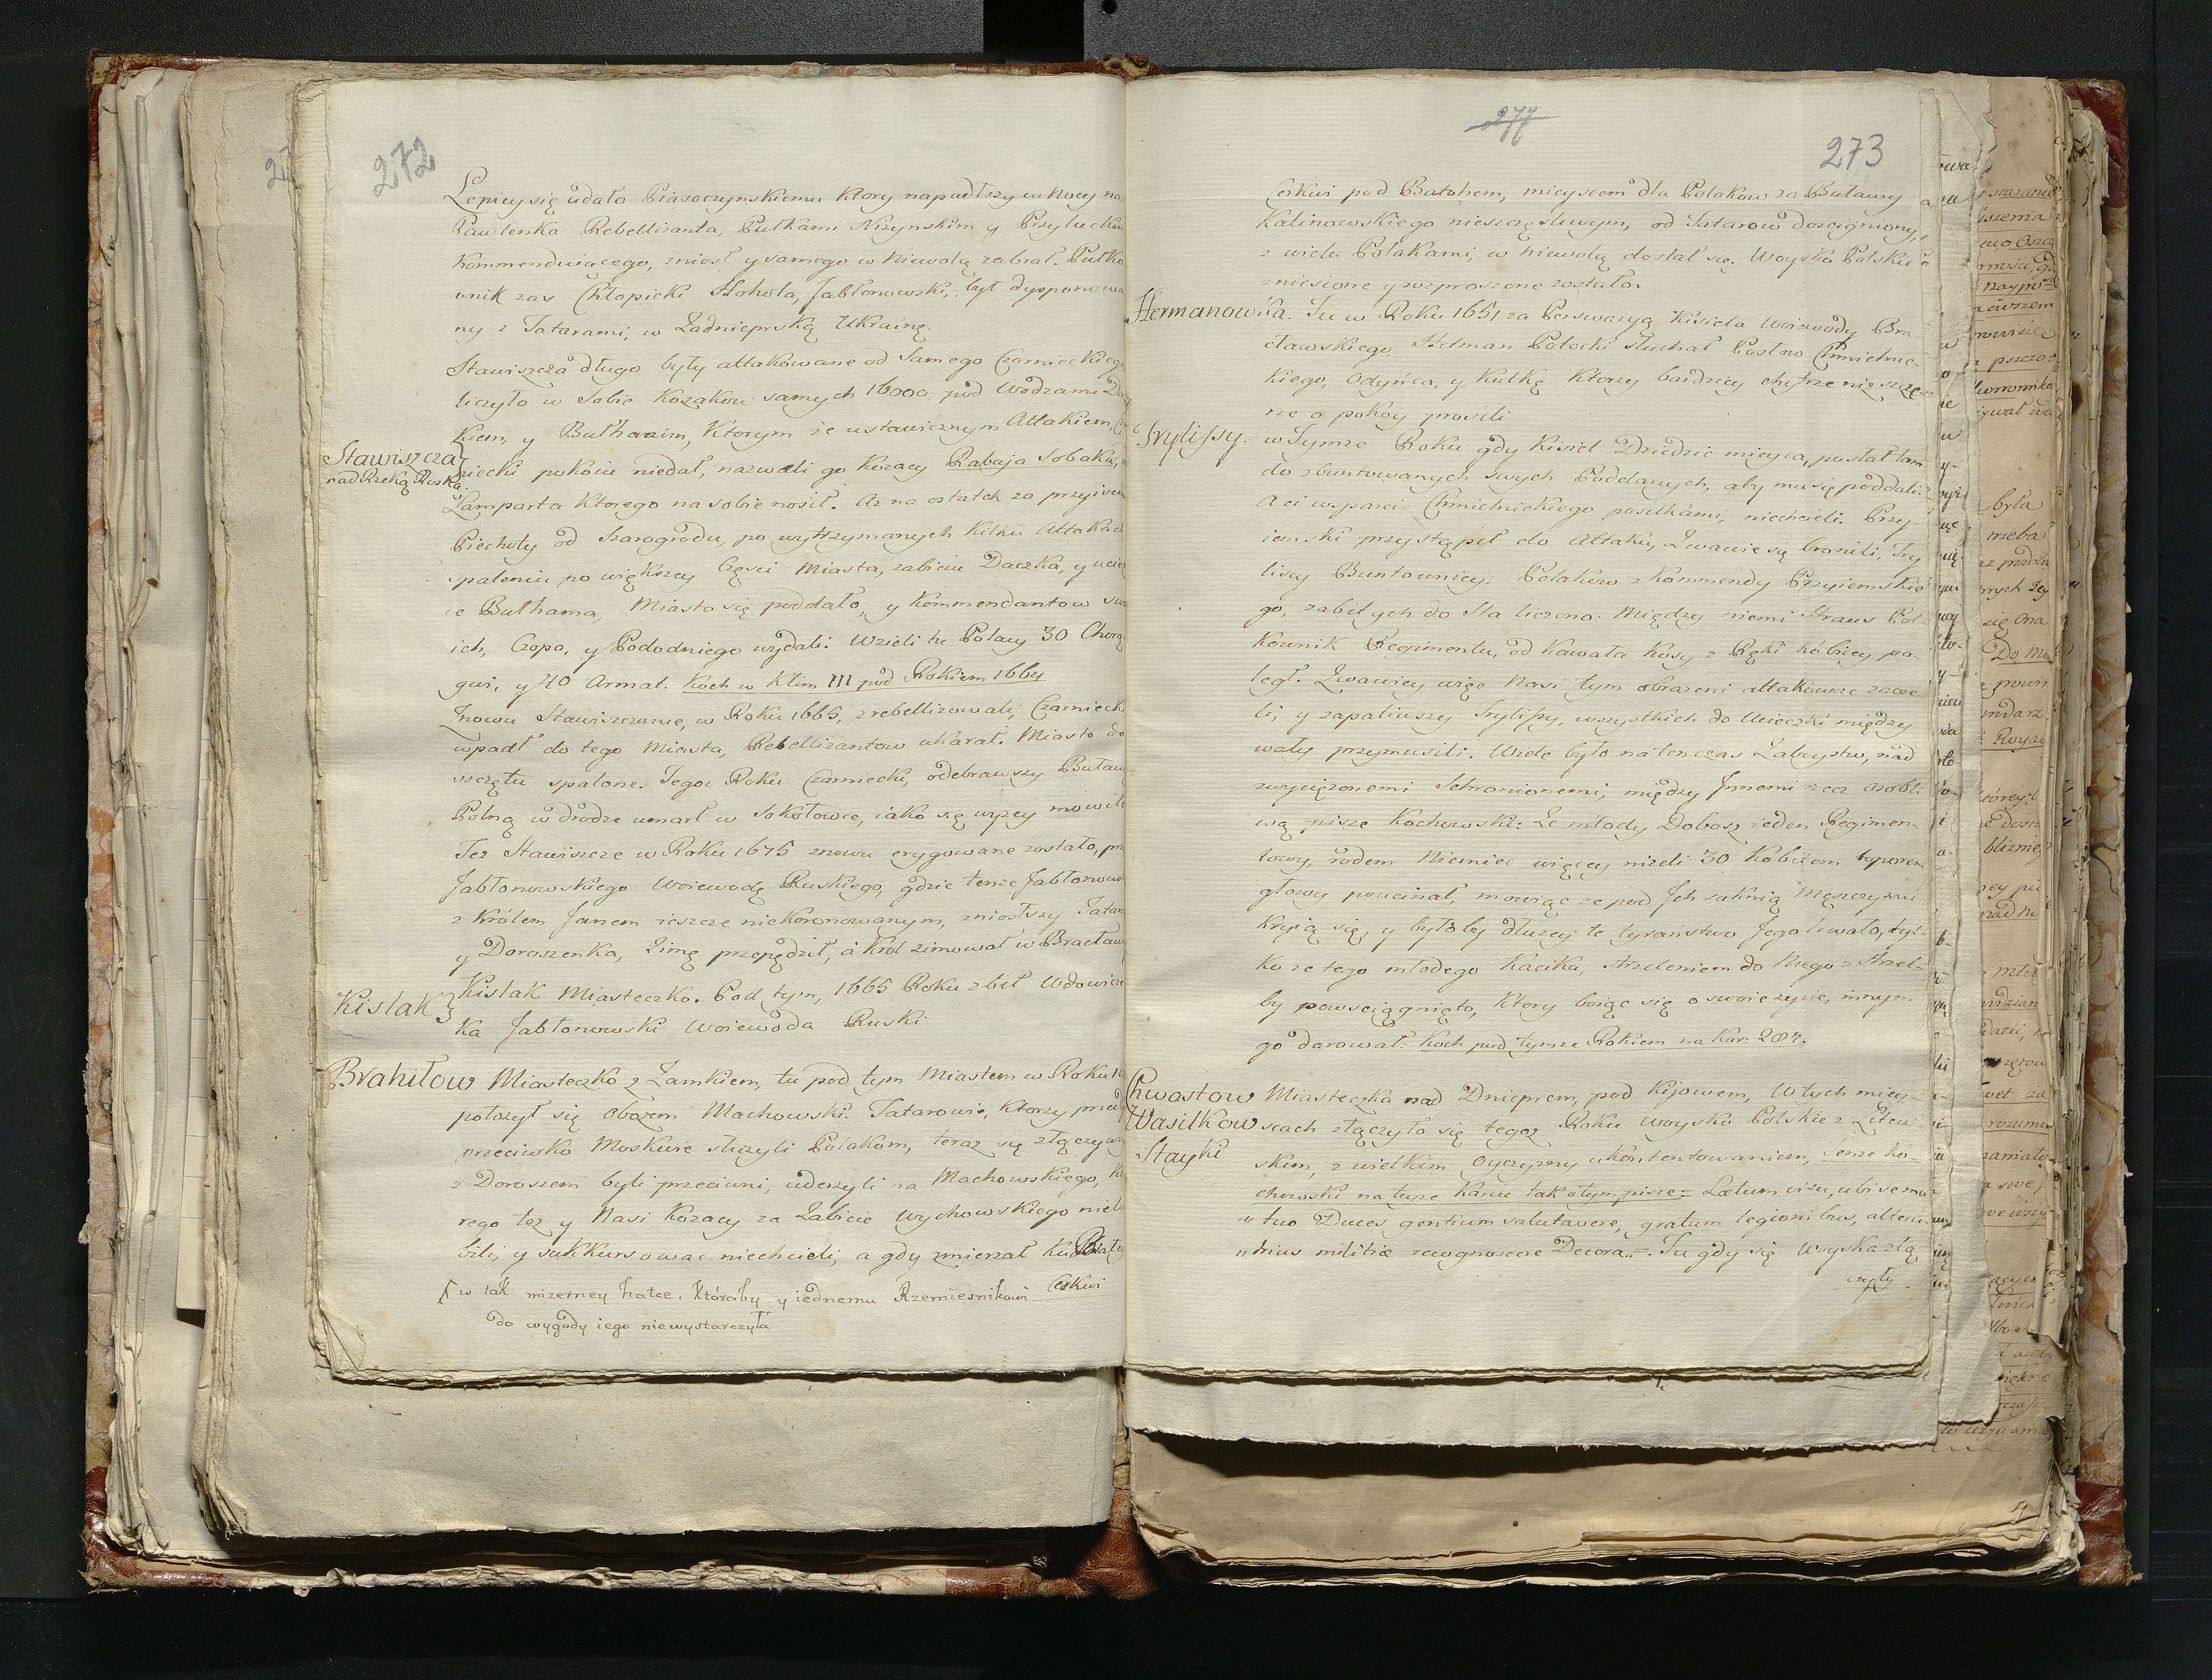 272
Lepiey się udało Piasoczynskiemu ktory napadłszy w Nocy na
Pawlenka Rebellizanta, Pułkami Niżynskim y Przyłuckim
kommenduiącego, zniosł y samego w Niewolą zabrał. Pułko
wnik zas Chłopicki Hohola, Jabłonowski, był dysponowa
ny z Tatarami, w Zadnieprską Ukrainę.
Stawiszcza długo były attakowane od Samego Czarnieckiego
liczyło w Sobie Kozakow samych 16000. pod Wodzami Da
kiem, y Bułhaaim, Ktorym że ustawicznym Attakiem, Cza
Stawiszcza
nad Rzeką Roską
niecki pokoiu niedał, nazwali go Kozacy Rabaja Sobaka, o
Lamparta Ktorego na sobie nosił. Az na ostatek za przyisciem
Piechoty od Szarogrodu, po wytrzymanych kilku Attakach
spaleniu po większey Częsci Miasta, zabiciu Daczka, y uciec
ce Bułhama, Miasto się poddało, y Kommendantow swo
ich, Czopa, y Pododniego wydali. Wzieli tu Polacy 30 Chorą
gwi, y 40 Armat. Koch w Klim III pod Rokiem 1664
Znowu Stawiszczanie, w Roku 1665, zrebellizowali, Czarniecki
wpadł do tego Miasta, Rebellizantow ukarał. Miasto do
szczętu spalone. Tegoż Roku Czarniecki, odebrawszy Buław
Polną w drodze umarł w Sokołowce, iako się wyzey mowiło
Też Stawiszcze w Roku 1675 znowu erygowane zostało, prz
Jabłonowskiego Woiewodę Ruskiego, gdzie tenże Jabłonows
z Królem Janem ieszcze niekoronowanym, zniosłszy Tatar
y Doroszenka, Zimę przepędził, a Krol zimował w Bracław
Kislak
Kislak Miasteczko. Pod tym, 1665 Roku zbił Wdowicze
ka Jabłonowski Woiewoda Ruski
Brahiłow Miasteczko z Zamkiem, tu pod tym Miastem w Roku 16
położył się Obozem Machowski. Tatarowie, Ktorzy przed
przeciwko Moskwie służyli Polakom, teraz się złączywsz
z Doroszem byli przeciwni, uderzyli na Machowskiego, kto
rego też y Nasi Kozacy za Zabicie Wychowskiego nielu
bili, y sukkursować niechcieli, a gdy zmierzał ku Białey
Cerkwi
w tak mizerney hatce, któraby y iednemu Rzemiesnikowi
do wygody iego niewystarczyła
277
273
Cerkwi pod Batohem, mieyscem dla Polakow za Buławy
Kalinowskiego nieszczęsliwym, od Tatarow doscigniony,
z wielo Polakami, w niewolą dostał się. Woysko Polskie
zniesione y rozproszone zostało.
Hermanowka. Tu w Roku 1651 za Perswazyą Kisiela Woiewody Bra
cławskiego Hetman Potocki słuchał Posłow Chmielnic-
kiego, Odyńca, y Kulkę Ktorzy bardziey chytrze niż szcze-
rze o pokoy prosili
Trylissy. w Tymże Roku gdy Kisiel Dziedzic mieysca, posłał tam
do zbuntowanych swych Poddanych, aby mu się poddali.
A ci wsparci Chmielnickiego posiłkami, niechcieli. Przy
iemski przystąpił do Attaku, Zwawie się bronili, Try
liscy Buntownicy. Polakow z Kommendy Przyiemskie
go, zabitych do Sta liczono: Między niemi Straus Poł
kownik Regimentu, od Kawała Kosy z Ręki Kobiecy po-
legł. Zwawiey więc Nasi tym obrażeni attakować zacze
li, y zapaliwszy Trylissy, wszystkich do Ucieczki między
wały przymusili. Wiele było natenczas Zaboystw, nad
zwyciężonemi Schronionemi, między Jnnemi rzecz osobli
wą pisze Kochowski: Że młody Dobosz ieden Regimen-
towy, rodem Niemiec więcey niżeli 30 Kobitom toporem
głowy poucinał, mowiąc że pod Jch suknią Męszczyzni
kryią się, y byłoby dłużey te tyraństwo Jego trwało, tyl-
ko ze tego młodego Kacika, strzeleniem do Niego z Strzel-
by powsciągnięto, Ktory boiąc się o swoie życie, innym
go darował: Koch pod tymże Rokiem na Kar: 287.
Chwastow Miasteczka nad Dnieprem, pod Kijowem, W tych miey-
Wasilkow scach złączyło się tegoż Roku woysko Polskie z Litew-
Stayki
skim, z wielkim Oyczyzny ukontentowaniem, Tenże Ko-
chowski na teyże Karcie tak o tym pisze = Lætum visu, ubi se mu
" tuo Duces gentium salutavere, gratum legionibus, alteru
" trius militiæ recognoscere Decora. = Tu gdy się Woyska złą
czyły